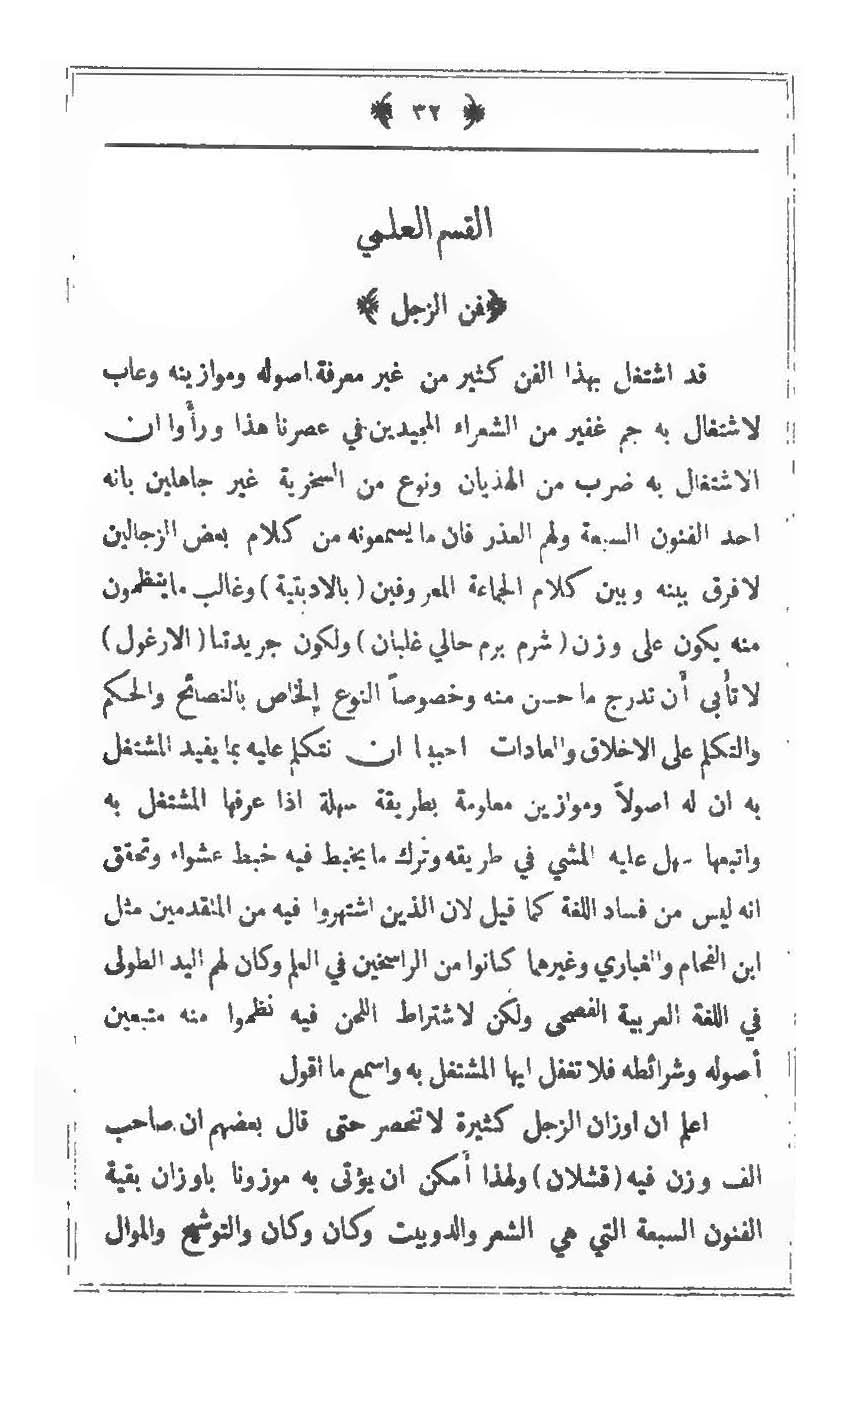 ﴿ ٣٢ ﴾
القسم العلمي
﴿فن الزجل﴾
قد اشتغل بهذا الفن كثير من غير معرفة اصوله وموازينه وعاب
لاشتغال به جم غفير من الشعراء المجيدين في عصرنا هذا ورأوا ان
الاشتغال به ضرب من الهذيان ونوع من السخرية غير جاهلين بانه
احد الفنون السبعة ولهم العذر فان ما يسمعونه من كلام بعض الزجالين
لافرق بينه وبين كلام الجماعة المعروفين (بالادبتية) وغالب ماينظمون
منه يكون على وزن (شرم برم حالي غلبان) ولكون جريدتنا (الارغول)
لا تأبى أن تدرج ما حسن منه وخصوصاً النوع الخاص بالنصائح والحكم
والتكلم على الاخلاق والعادات احببنا ان نتكلم عليه بما يفيد المشتغل
به ان له اصولاً وموازين معلومة بطريقة سهلة اذا عرفها المشتغل به
واتبعها سهل عليه المشي في طريقه وترك ما يخبط فيه خبط عشواء وتحقق
انه ليس من فساد اللغة كما قيل لان الذين اشتهروا فيه من المتقدمين مثل
ابن الفحام والغباري وغيرهما كانوا من الراسخين في العلم وكان لهم اليد الطولى
في اللغة العربية الفصحى ولكن لاشتراط اللحن فيه نظموا منه متبعين
أصوله وشرائطه فلا تغفل ايها المشتغل به واسمع ما اقول
اعلم ان اوزان الزجل كثيرة لا تنحصر حتى قال بعضهم ان صاحب
الف وزن فيه (قشلان) ولهذا أمكن ان يؤتى به موزونا باوزان بقية
الفنون السبعة التي هي الشعر والدوبيت وكان وكان والتوشيح والموال